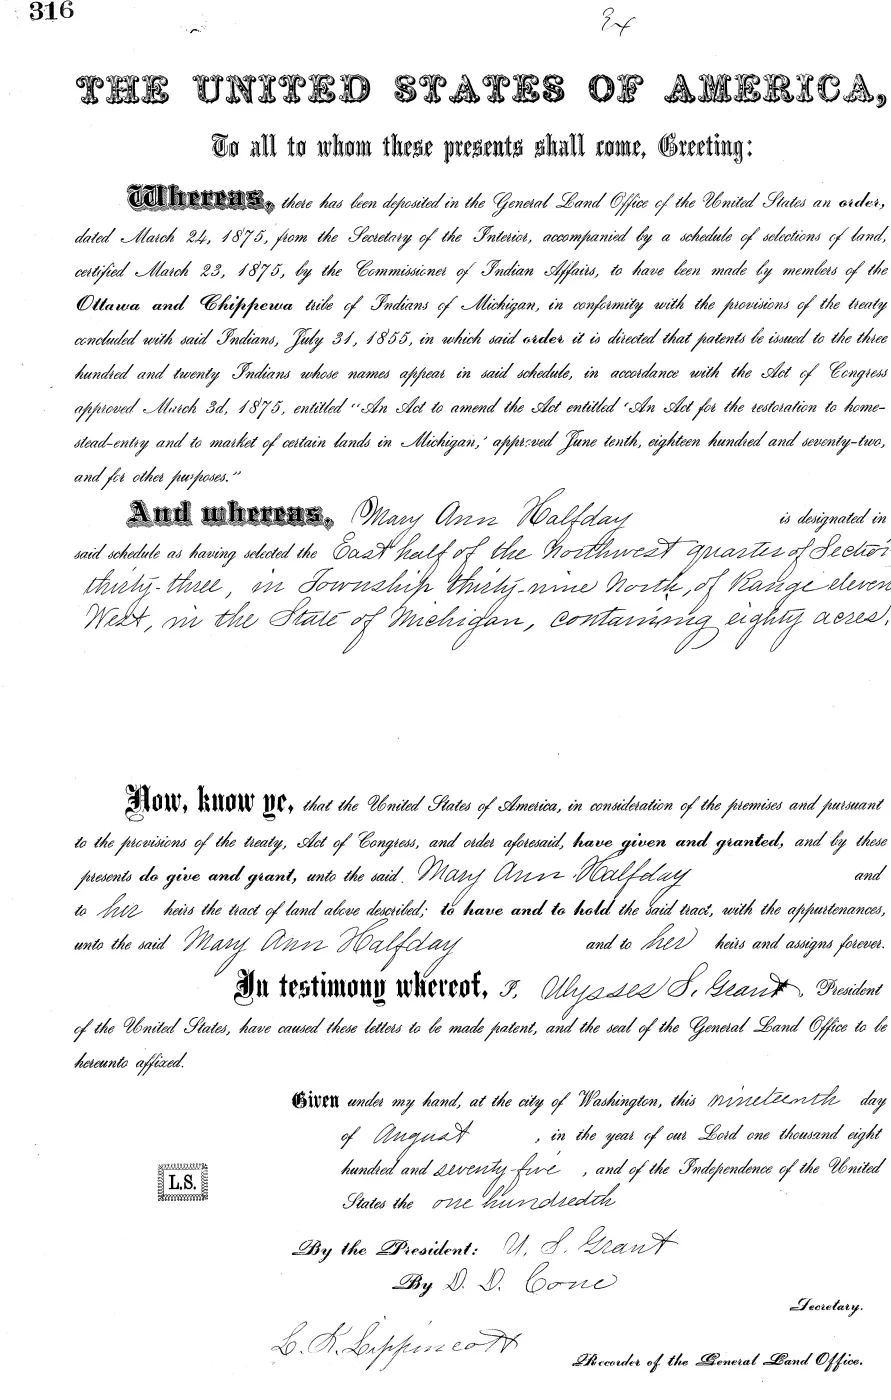 316
Ex
THE UNITED STATES OF AMERICA,
To all to whom these presents shall come, Greeting:
Whereas, there has been deposited in the General Land Office of the United States an order,
dated March 24, 1875, from the Secretary of the Interior, accompanied by a schedule of selections of land,
certified March 23, 1875, by the Commissioner of Indian Affairs, to have been made by members of the
Ottawa and Chippewa tribe of Indians of Michigan, in conformity with the provisions of the treaty
concluded with said Indians, July 31, 1855, in which said order it is directed that patents be issued to the three
hundred and twenty Indians whose names appear in said schedule, in accordance with the Act of Congress
approved March 3d, 1875, entitled "An Act to amend the Act entitled 'An Act for the restoration to home-
stead-entry and to market of certain lands in Michigan,' approved June tenth, eighteen hundred and seventy-two,
and for other purposes."
And whereas, Mary Ann Halfday is designated in
said schedule as having selected the East half of the Northwest quarter of Section
thirty-three, in Township thirty-nine North, of Range eleven
West, in the State of Michigan, containing eighty acres.
Now, know ye, that the United States of America, in consideration of the premises and pursuant
to the provisions of the treaty, Act of Congress, and order aforesaid, have given and granted, and by these
presents do give and grant, unto the said Mary Ann Halfday and
to her heirs the tract of land above described; to have and to hold the said tract, with the appurtenances,
unto the said Mary Ann Halfday and to her heirs and assigns forever.
In testimony whereof, I, Ulysses S. Grant, President
of the United States, have caused these letters to be made patent, and the seal of the General Land Office to be
hereunto affixed.
Given under my hand, at the city of Washington, this nineteenth day
of August, in the year of our Lord one thousand eight
hundred and seventy-five, and of the Independence of the United
States the one hundredth
L.S.
By the President: U. S. Grant
By D. D. Cone
Secretary.
L. K. Lippincott
Recorder of the General Land Office.